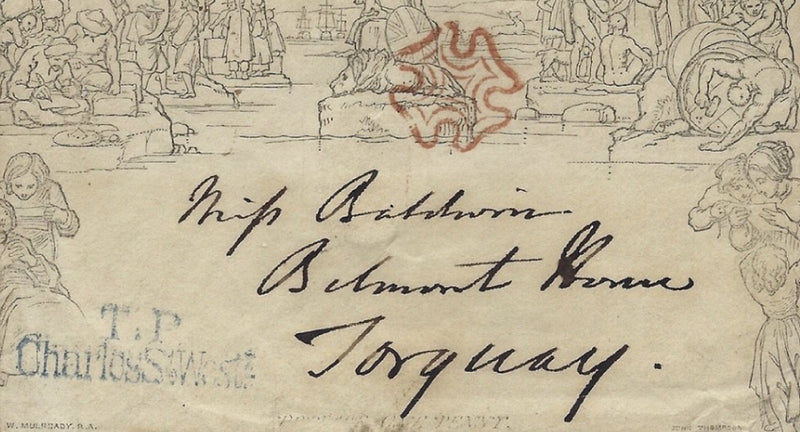 Miss Baldwin
Belmont House
Torquay.
T.P
Charles St West^r
W. MULREADY. R.A.
JOHN THOMPSON